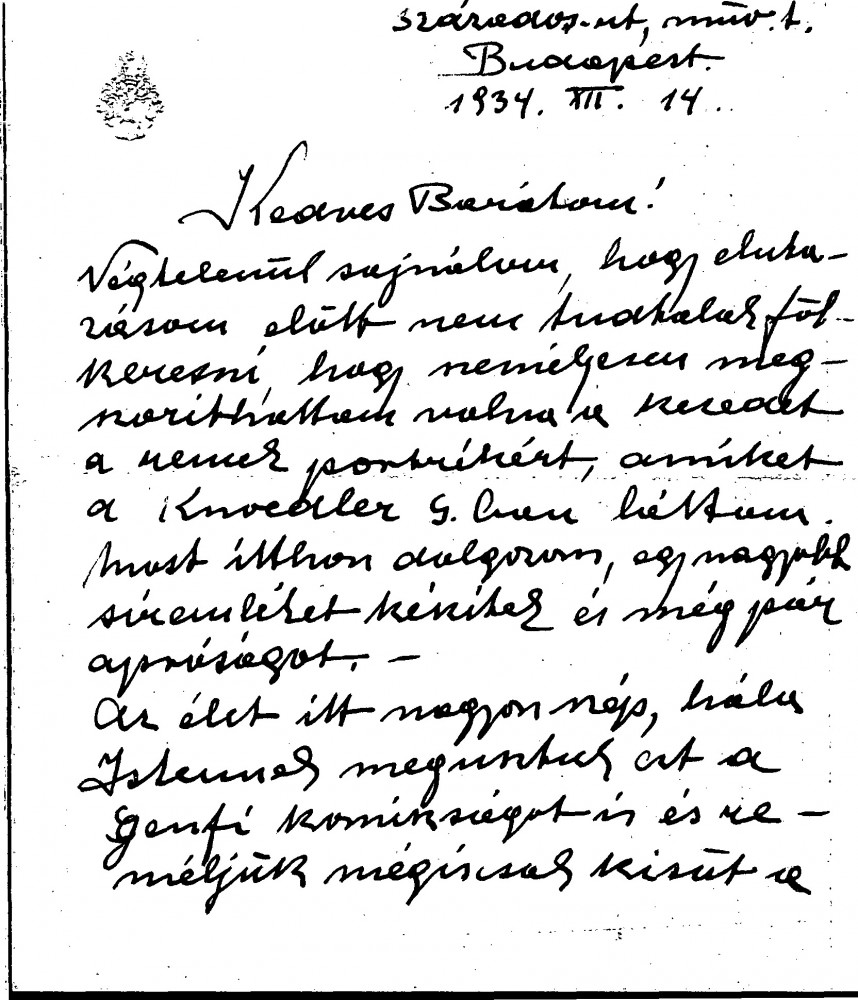 Százados-ut, műv. t.
Budapest.
1934. XII. 14.
Kedves Barátom!
Végtelenül sajnálom, hogy eluta-
zásom előtt nem tudtalak föl-
keresni, hogy személyesen meg-
szoríthattam volna a kezedet
a remek portrékért, amiket
a Knoedler G. ban láttam.
Most itthon dolgozom, egy nagyobb
síremléket készítek és még pár
apróságot. —
Az élet itt nagyon szép, hála
Istennek megusztuk ezt a
genfi komikságot is és re-
méljük mégiscsak kisüt a